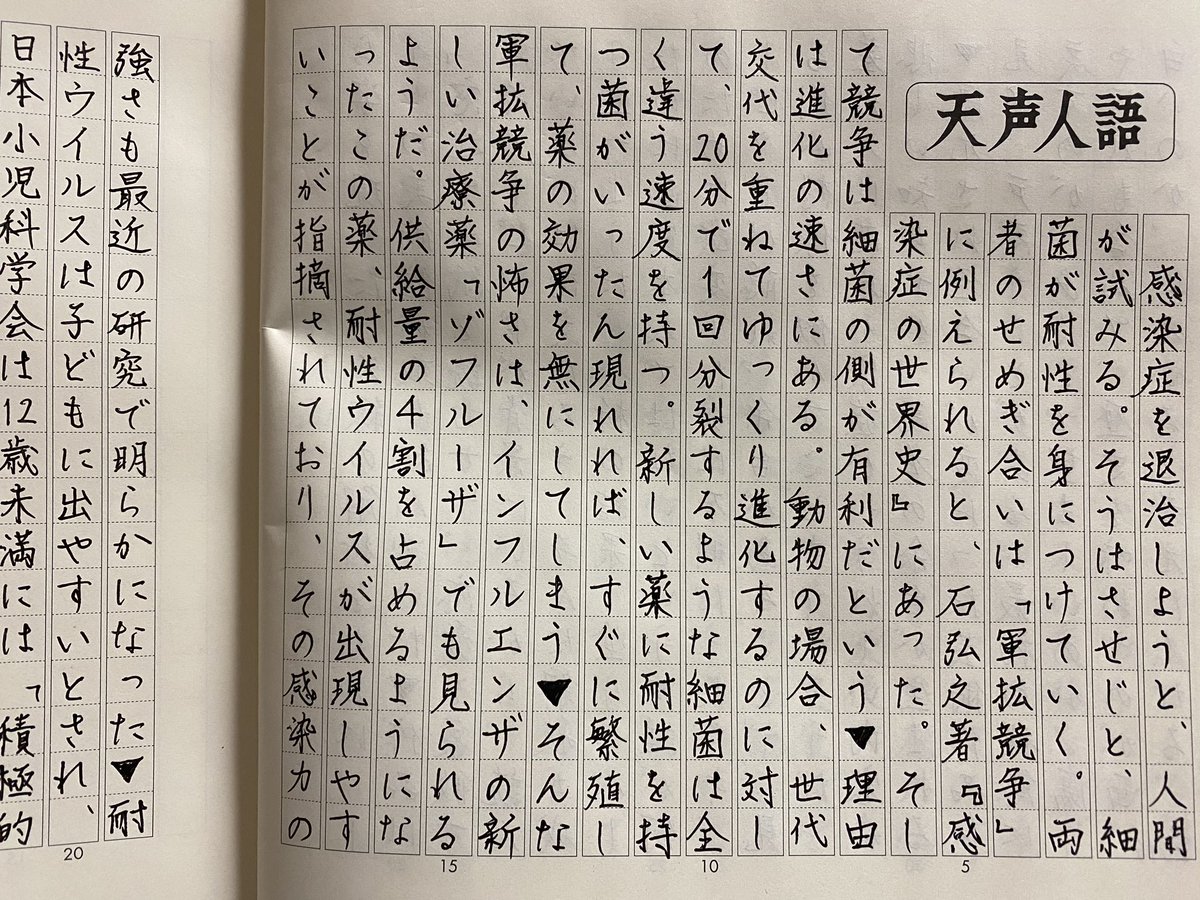 天声人語
感染症を退治しようと、人間
が試みる。そうはさせじと、細
菌が耐性を身につけていく。両
者のせめぎ合いは「軍拡競争」
に例えられると、石弘之著『感
染症の世界史』にあった。そし
て競争は細菌の側が有利だという▼理由
は進化の速さにある。動物の場合、世代
交代を重ねてゆっくり進化するのに対し
て、20分で1回分裂するような細菌は全
く違う速度を持つ。新しい薬に耐性を持
つ菌がいったん現れれば、すぐに繁殖し
て、薬の効果を無にしてしまう▼そんな
軍拡競争の怖さは、インフルエンザの新
しい治療薬「ゾフルーザ」でも見られる
ようだ。供給量の4割を占めるようにな
ったこの薬、耐性ウイルスが出現しやす
いことが指摘されており、その感染力の
強さも最近の研究で明らかになった▼耐
性ウイルスは子どもに出やすいとされ、
日本小児科学会は12歳未満には「積極的
5
10
15
20